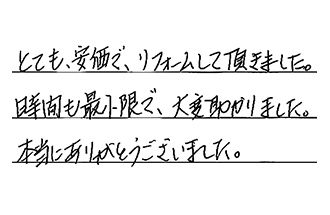 とても、安価で、リフォームして頂きました。
時間も最小限で、大変助かりました。
本当にありがとうございました。